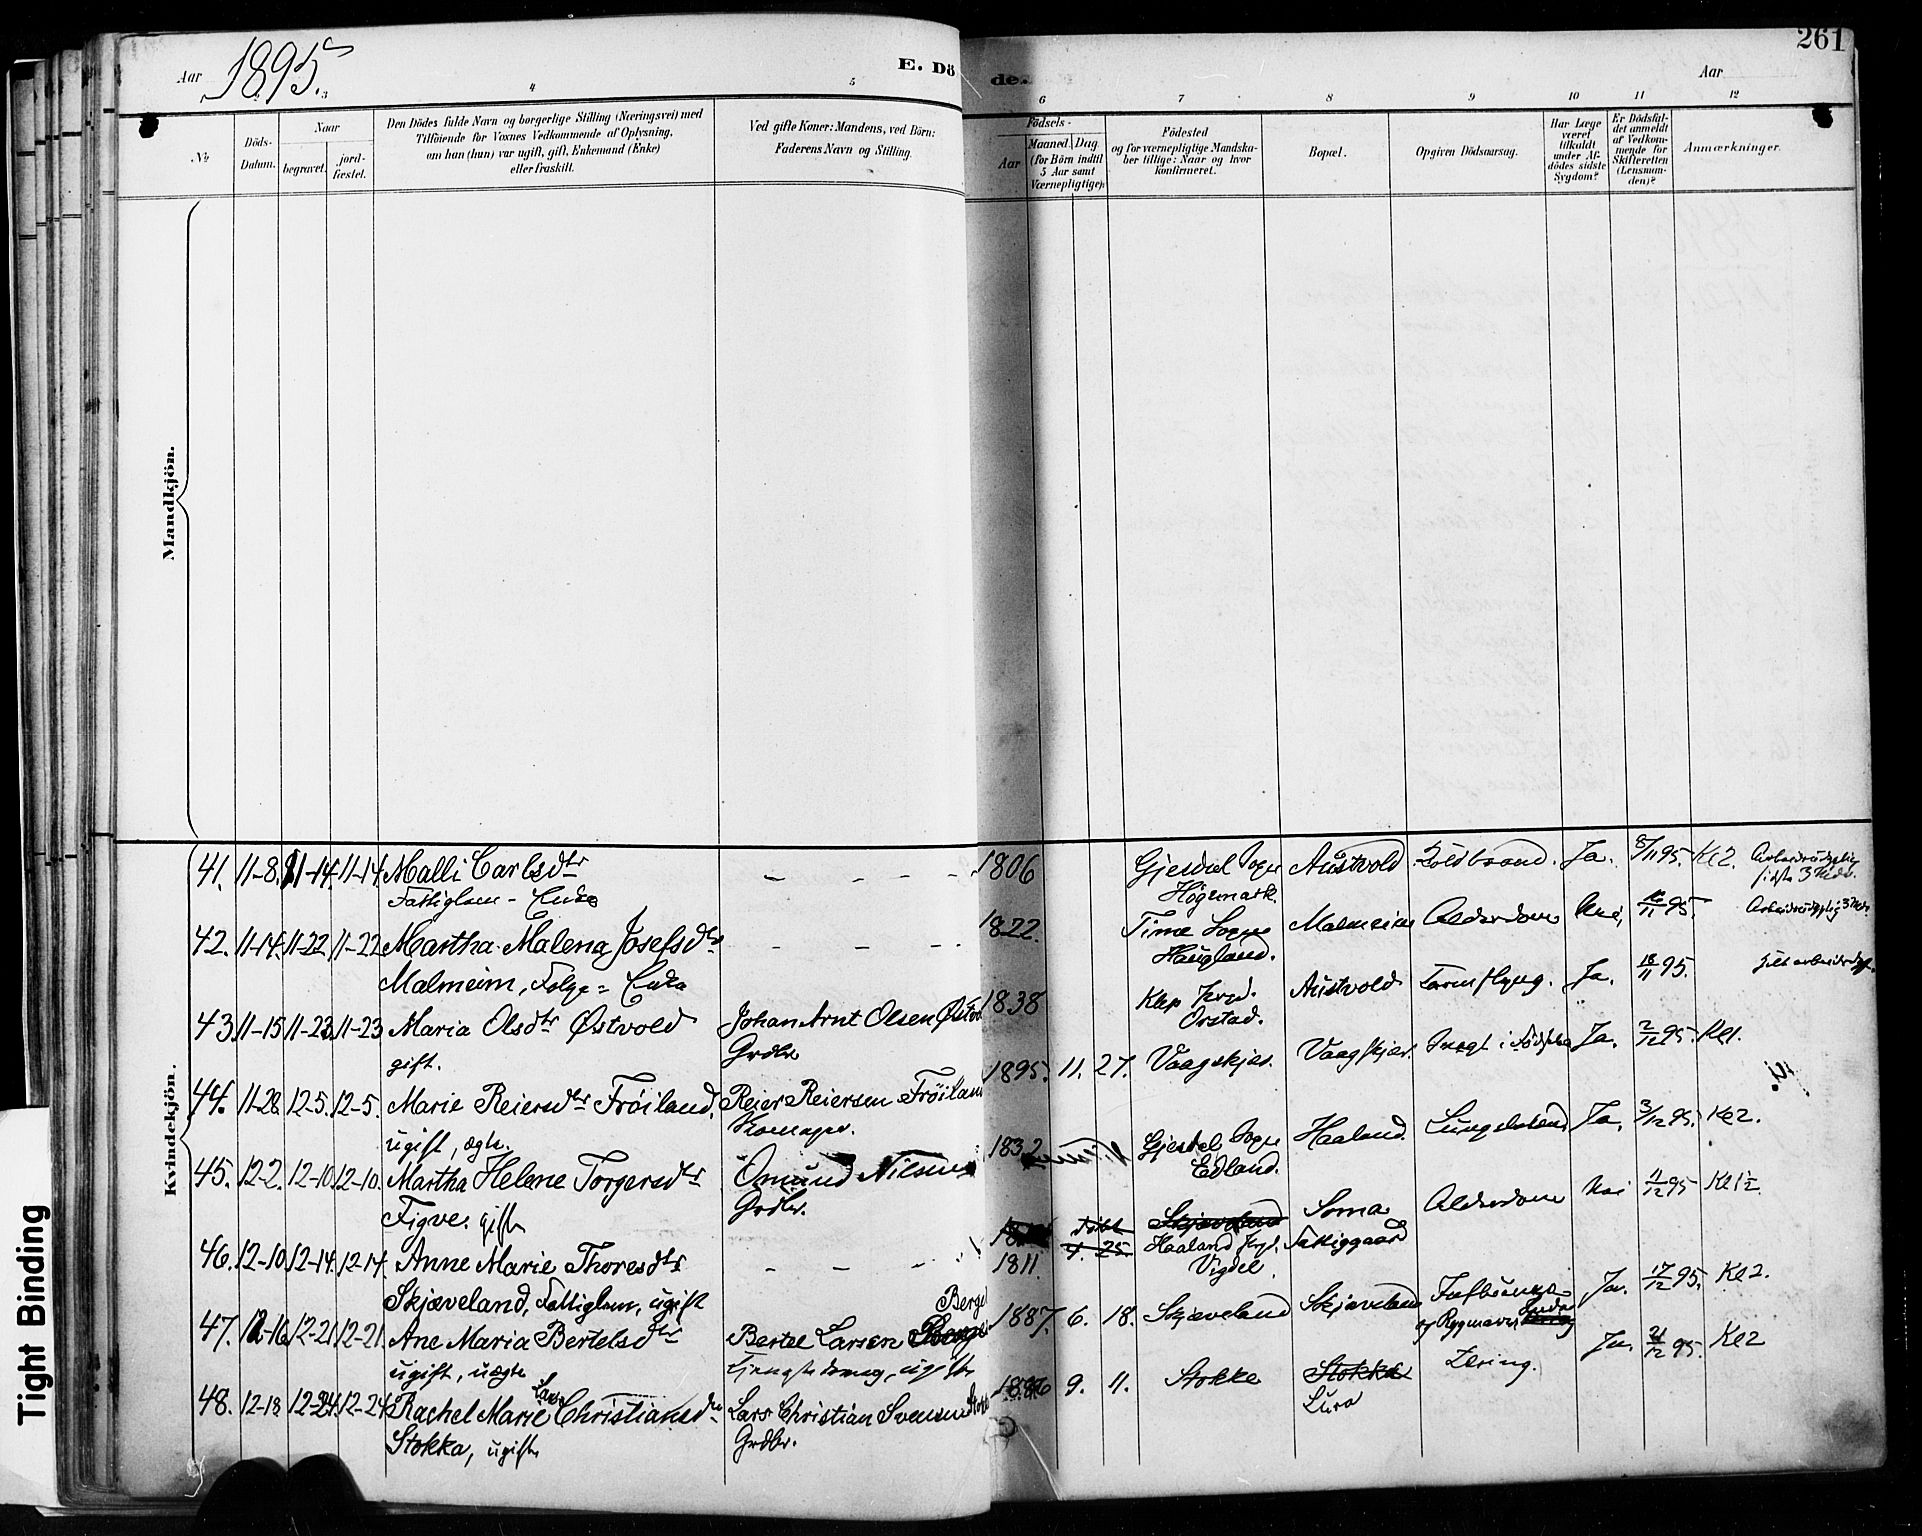 Aar 1895.
E. Dö
de.
Aar
261
3
4
5
6
7
8
9
10
11
12
No
Döds-
Datum.
Naar
begravet.
jord-
fæstet.
Den Dödes fulde Navn og borgerlige Stilling (Næringsvei) med
Tilföiende for Voxnes Vedkommende af Oplysning,
om han (hun) var ugift, gift, Enkemand (Enke)
eller fraskilt.
Ved gifte Koner: Mandens, ved Börn:
Faderens Navn og Stilling.
Födsels-
Aar
Maaned, Dag
(for Börn indtil
5 Aar samt
Værnepligtige).
Födested
og for værnepligtige Mandska-
ber tillige: Naar og hvor
konfirmeret.
Bopæl.
Opgiven Dödsaarsag.
Har Læge
været
tilkaldt
under Af-
dödes sidste
Sygdom?
Er Dödsfal-
det anmeldt
af Vedkom-
mende for
Skifteretten
(Lensman-
den)?
Anmærkninger.
Mandkjön.
Kvindekjön.
41. 11-8. 11-14. 11-14. Malli Carlsdtr - - - - 1806 Gjesdal Sogn Austvold Koldbrand. Ja. 8/11 95. Kl 2.
Fattiglem - Enke Högemark.
42. 11-14. 11-22. 11-22 Martha Malena Josefsdtr - - - - 1822. Time Sogn Malmeim Alderdom Nei, 95.
Malmeim, Folge- Enke Haugland.
43. 11-15 11-23. 11-23 Maria Olsdtr Østvold Johan Arnt Olsen 1838 Klep Austvold Ja. 18/11 95.
gift. Grdbr. Orstad.
44. 11-28. 12-5. 12-5. Marie Reiersdtr Fröiland. Reier Reiersen Fröiland 1895. 11. 27. Vaagskjær. Vaagskjær. Ja. 2/12 95. Kl 1.
ugift, ægte.
45. 12-2. 12-10. 12-10. Martha Helene Torgersdtr Omund Nilsen 1832 Gjesdal Sogn Haaland. Ja. 3/12 95. Kl 2.
Figve. gift Grdbr. Edland.
46. 12-10. 12-14. 12-14. Anne Marie Thoresdtr - - - - 1811. 4. 25. Skjæveland Soma Alderdom Nei 11/12 95 Kl 1½
Skjæveland, Fattiglem, ugift Haaland Vigdel. Fattiggaard
47. 12-16. 12-21. 12-21. Ane Maria Bertelsdtr Bertel Larsen Berge 1887. 6. 18. Skjæveland Skjæveland Ja. 17/12 95. Kl 2.
ugift, uægte ugift
48. 12-18. 12-24. 12-24. Rachel Marie Lars Christiansdtr Lars Christian Svensen 9. 11. Stokke Stokka Tæring. Ja. 21/12 95. Kl 2
Stokka, ugift Grdbr. Lura
Tight Binding